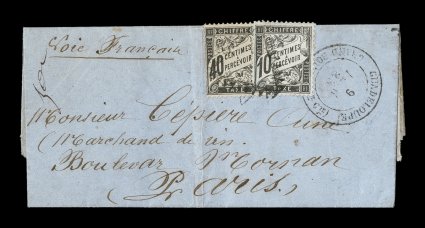 Voie Français
CHIFFRE
40 CENTIMES
A PERCEVOIR
TAXE
CHIFFRE
10 CENTIMES
A PERCEVOIR
TAXE
GUADELOUPE
Monsieur Cépière Aîné
(Marchand de vin
Boulevar Mornan
Paris